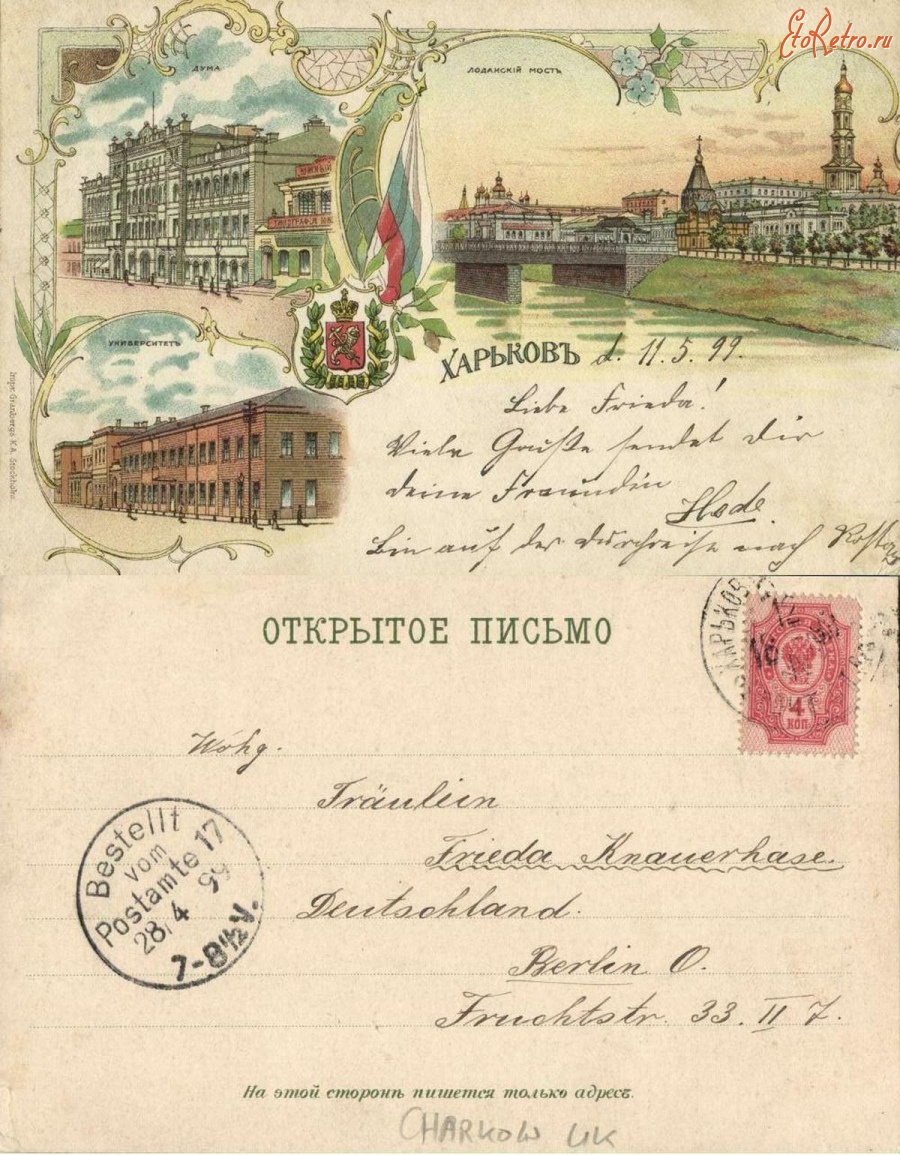 EtoRetro.ru
ДУМА
ЛОПАНСКІЙ МОСТЪ
ЮЖНЫЙ
ТИПОГРАФІЯ
УНИВЕРСИТЕТЪ
ХАРЬКОВЪ d. 11.5.99.
Liebe Frieda!
Viele Grüße sendet Dir
deine Freundin
Hede.
Bin auf der Durchreise nach
ОТКРЫТОЕ ПИСЬМО
ХАРЬКОВ
4
КОП
Wohg.
Fräulein
Frieda Knauerhase.
Bestellt
vom
Postamte 17
28/4 99
7-8½V.
Deutschland.
Berlin O.
Fruchtstr. 33. II 7.
На этой сторонѣ пишется только адресъ.
CHARKOW UK